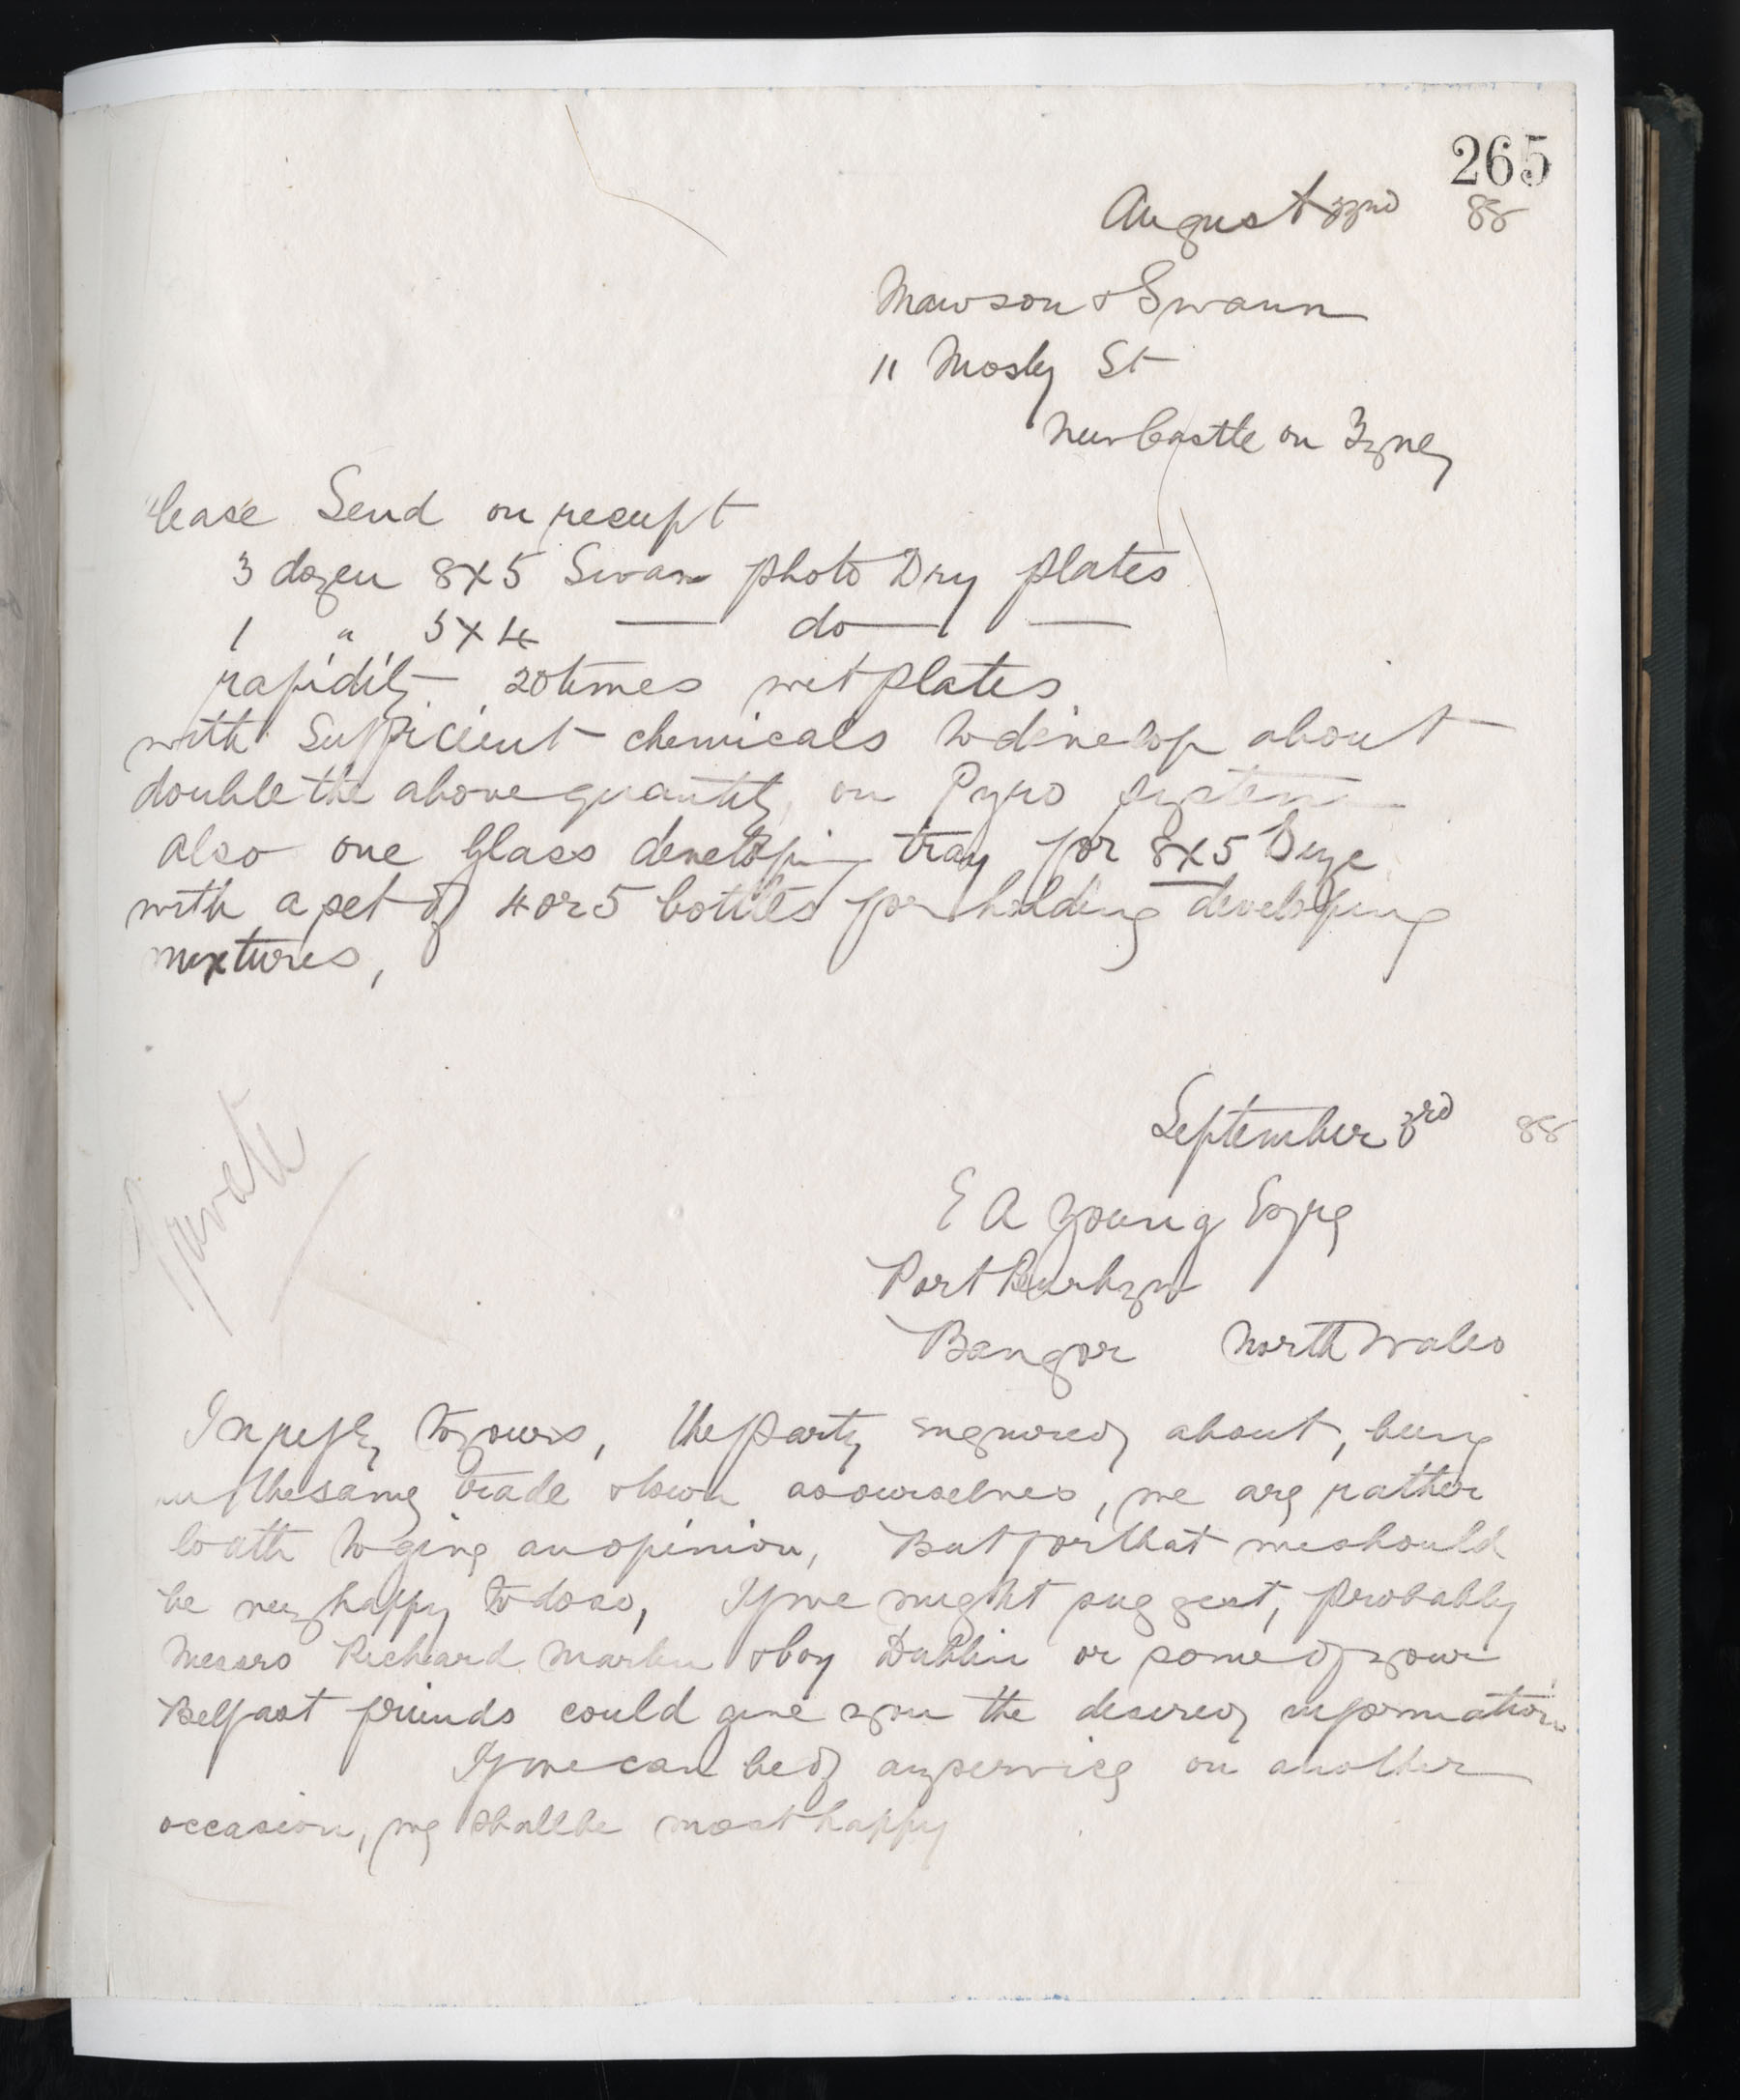 265
August 22nd 88
Mawson & Swann
11 Mosly St
New Castle on Tyne
lease Send on receipt
3 dozen 8x5 Swan photo Dry plates
1 " 5x4 — do — —
rapidity 20 times wet plates
with Sufficient chemicals to develop about
double the above quantity, on Pyro system
also one Glass developing tray for 8x5 Size
with a set of 4 or 5 bottles for holding developing
mixtures,
September 3rd 88
Private
E A Young Esqre
Port Penrhyn
Bangor North Wales
In reply to yours, the party enquired about, being
in the same trade & town as ourselves, we are rather
loath to give an opinion, But for that we should
be very happy to do so, If we might suggest, probably
Messrs Richard Martin & Coy Dublin or some of your
Belfast friends could give you the desired information
If we can be of any service on another
occasion, we shall be most happy